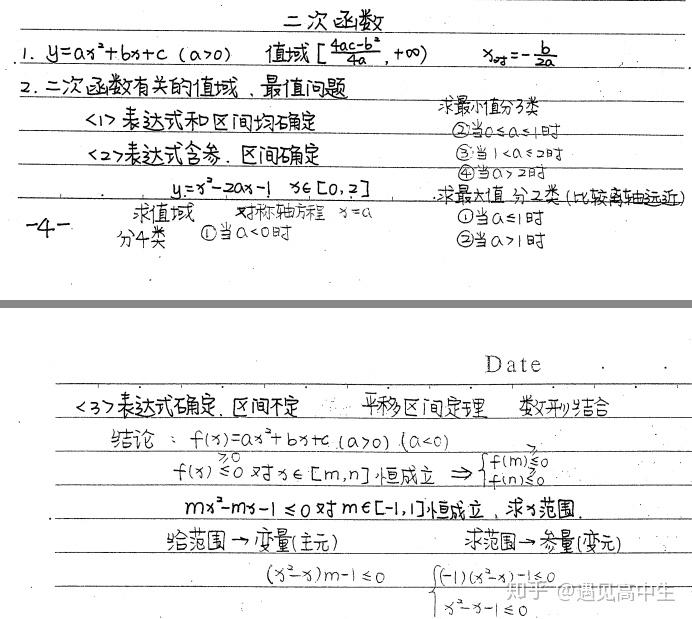 二次函数
1. y=ax²+bx+c (a>0) 值域[\frac{4ac-b²}{4a}, +∞) x对=-\frac{b}{2a}
2. 二次函数有关的值域、最值问题
<1>表达式和区间均确定
<2>表达式含参、区间确定
y=x²-2ax-1 x∈[0,2]
求值域 对称轴方程 x=a
分4类 ①当a<0时
-4-
求最小值分3类
②当0≤a≤1时
③当1<a≤2时
④当a>2时
求最大值 分2类(比较离轴远近)
①当a≤1时
②当a>1时
Date
<3>表达式确定、区间不定 平移区间定理 数形结合
结论:f(x)=ax²+bx+c (a>0) (a<0)
≥0 ≥
f(x)≤0对x∈[m,n]恒成立 ⇒ {f(m)≤0
≥
f(n)≤0
mx²-mx-1≤0对m∈[-1,1]恒成立、求x范围.
给范围→变量(主元) 求范围→参量(变元)
(x²-x)m-1≤0 {(-1)(x²-x)-1≤0
x²-x-1≤0
知乎 @遇见高中生